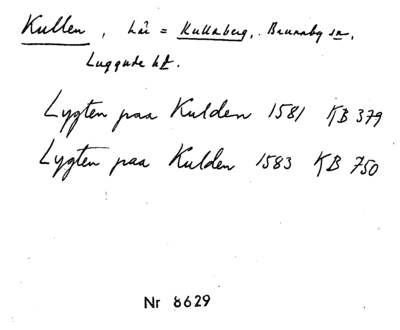 Kullen, Lä = Kullaberg, Brunnby sn,
Luggude hd.
Lygten paa Kulden 1581 KB 379
Lygten paa Kulden 1583 KB 750
Nr 8629